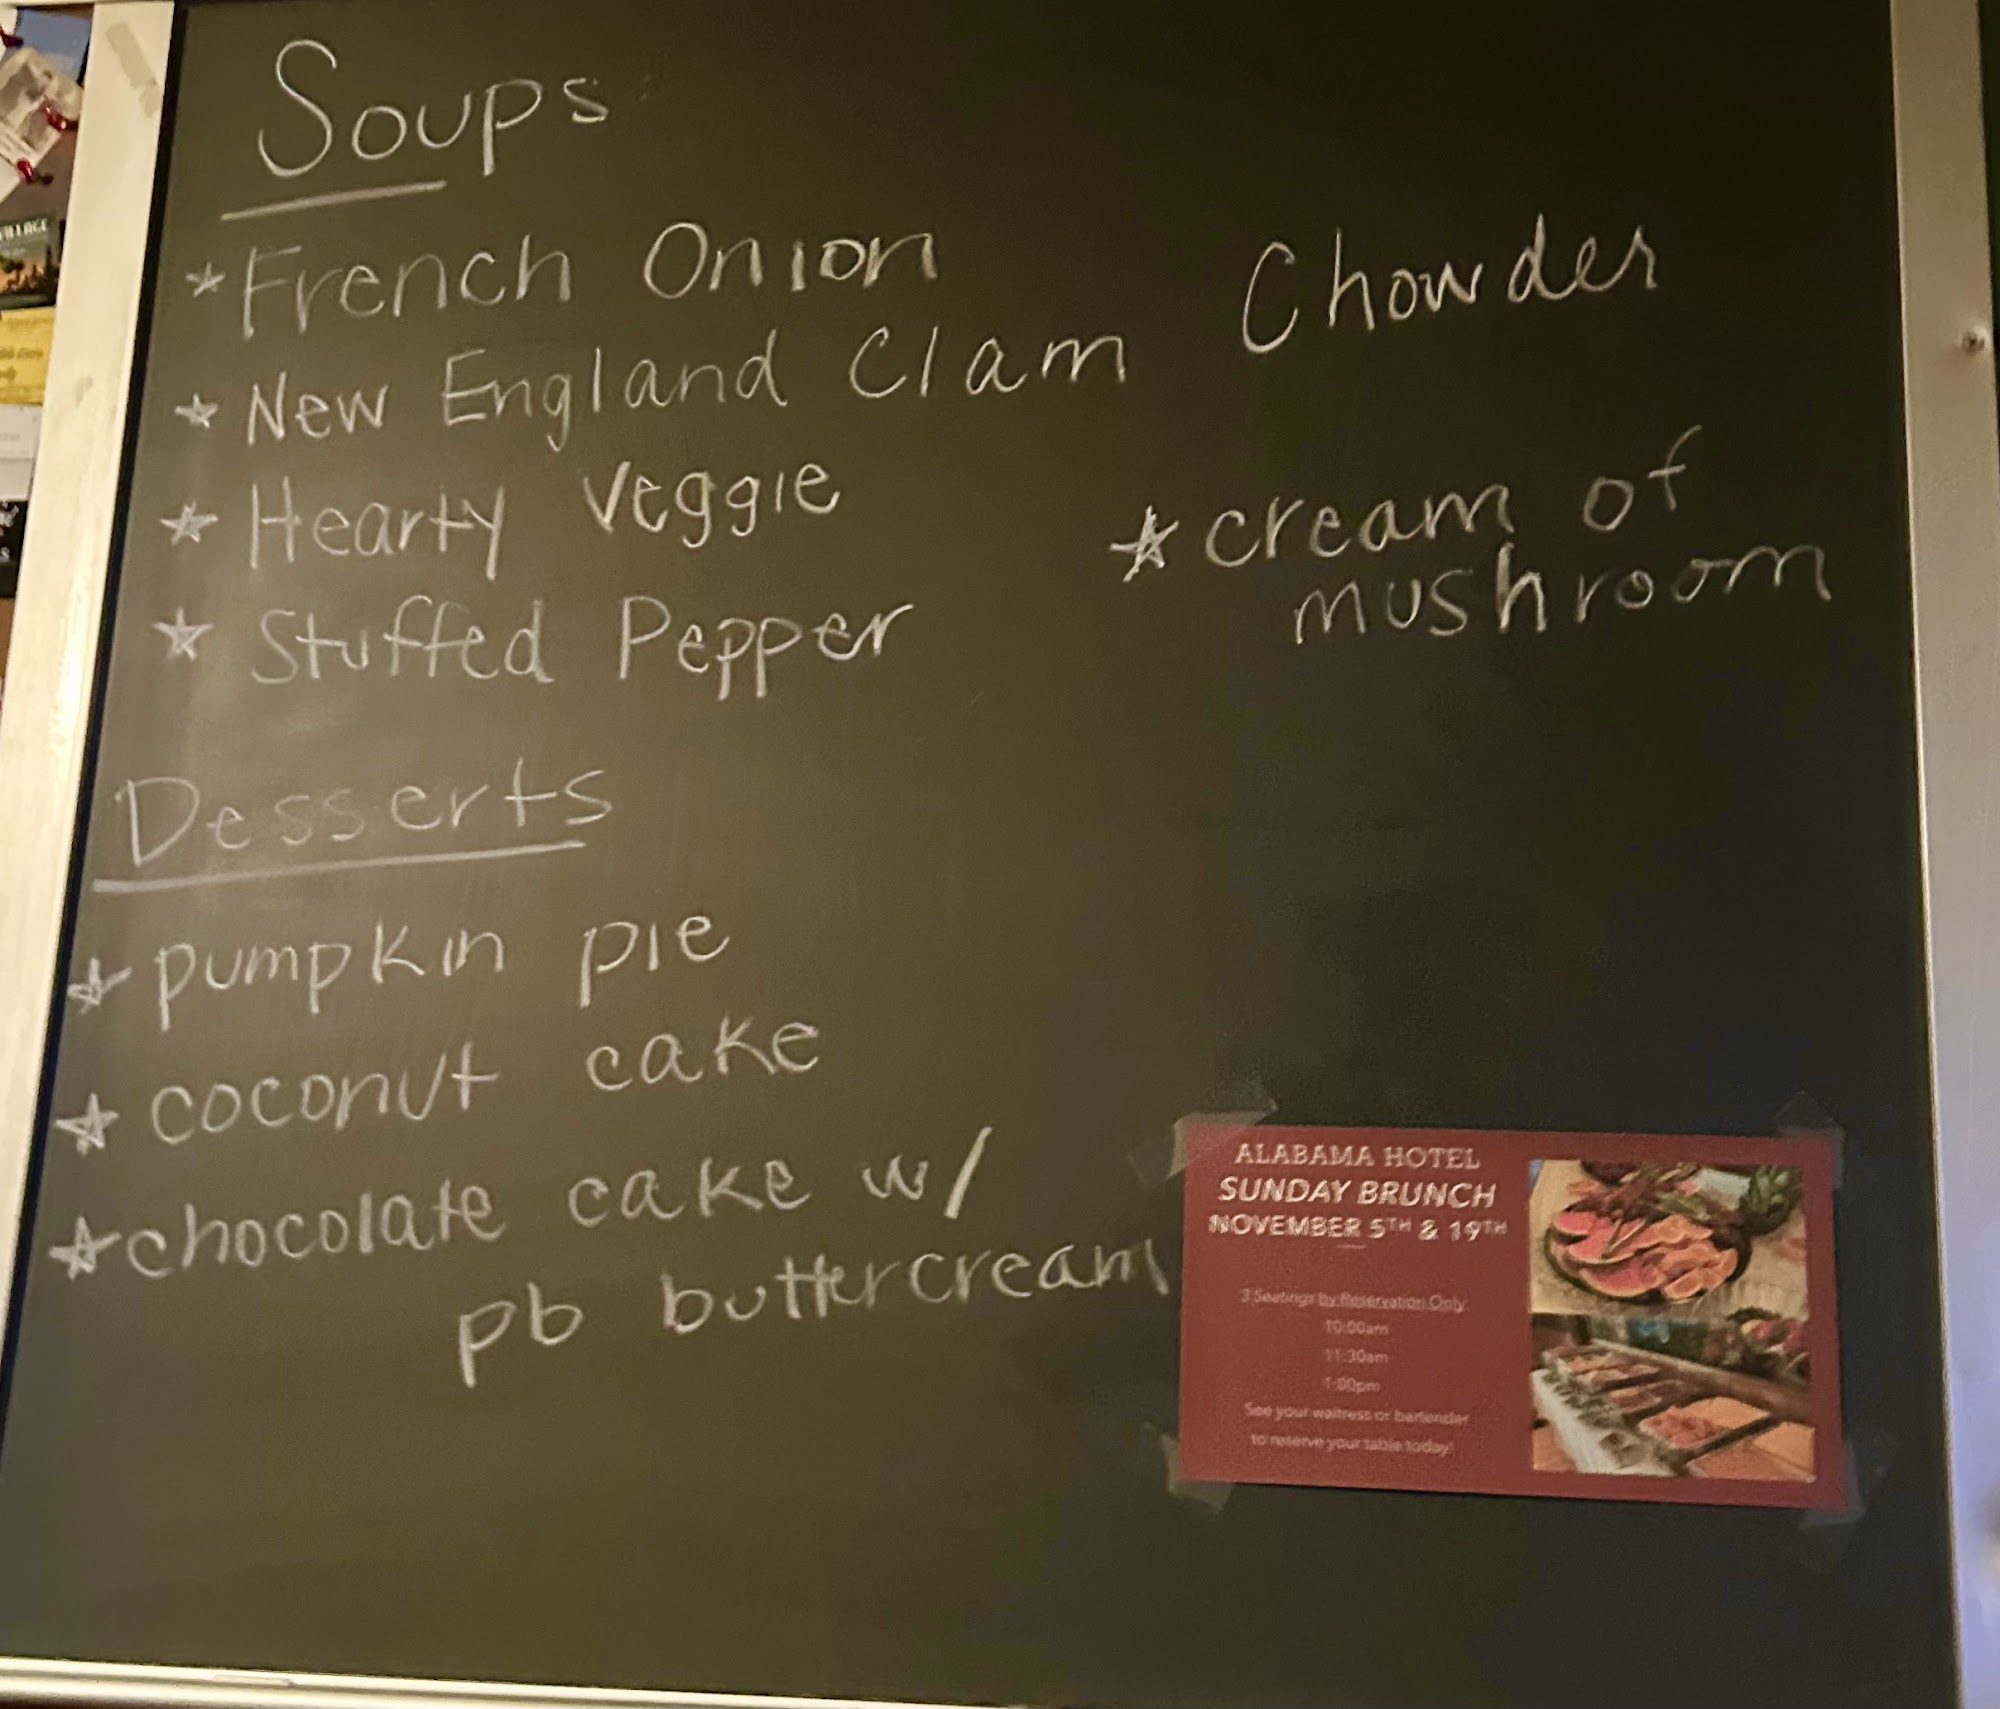 Soups
* French Onion
* New England Clam Chowder
* Hearty Veggie
* cream of
mushroom
* Stuffed Pepper
Desserts
* pumpkin pie
* coconut cake
* chocolate cake w/
pb buttercream
ALABAMA HOTEL
SUNDAY BRUNCH
NOVEMBER 5TH & 19TH
3 Seatings by Reservation Only:
10:00am
11:30am
1:00pm
See your waitress or bartender
to reserve your table today!